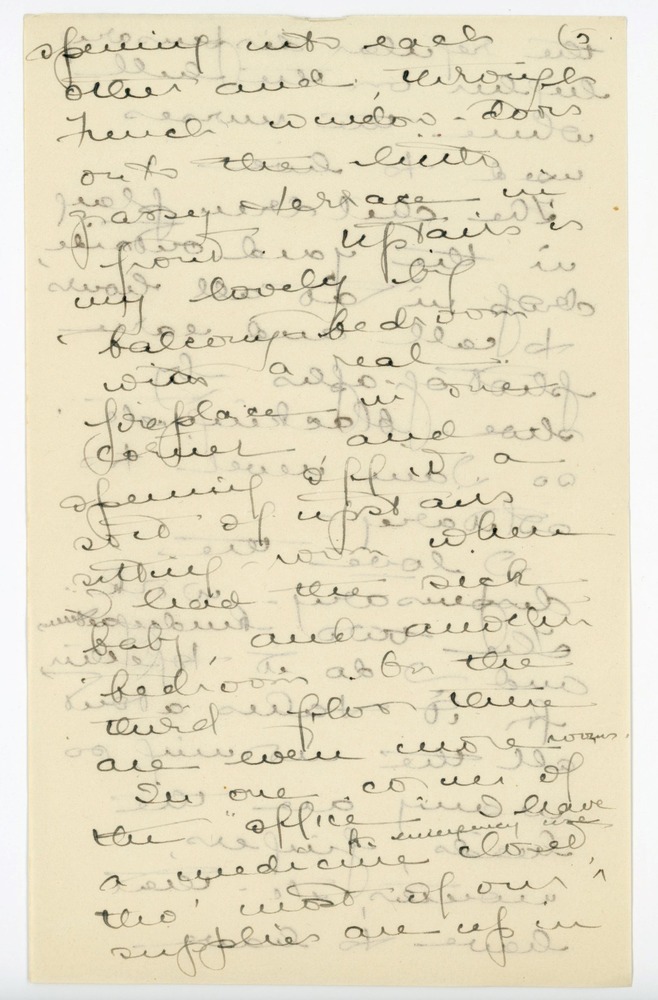 opening into each (3
other and, through
French window-doors
onto the little
grassy terrace in
front. Upstairs is
my lovely big
balcony-bedroom
with a real
fireplace in one
corner and
opening off it a
sort of upstairs
sitting-room where
I had the sick
baby, and another
bedroom. On the
third floor there
are even more rooms.
In one corner of
the "office" I have
a medicine closet, for emergency use
tho' most of our
supplies are up in